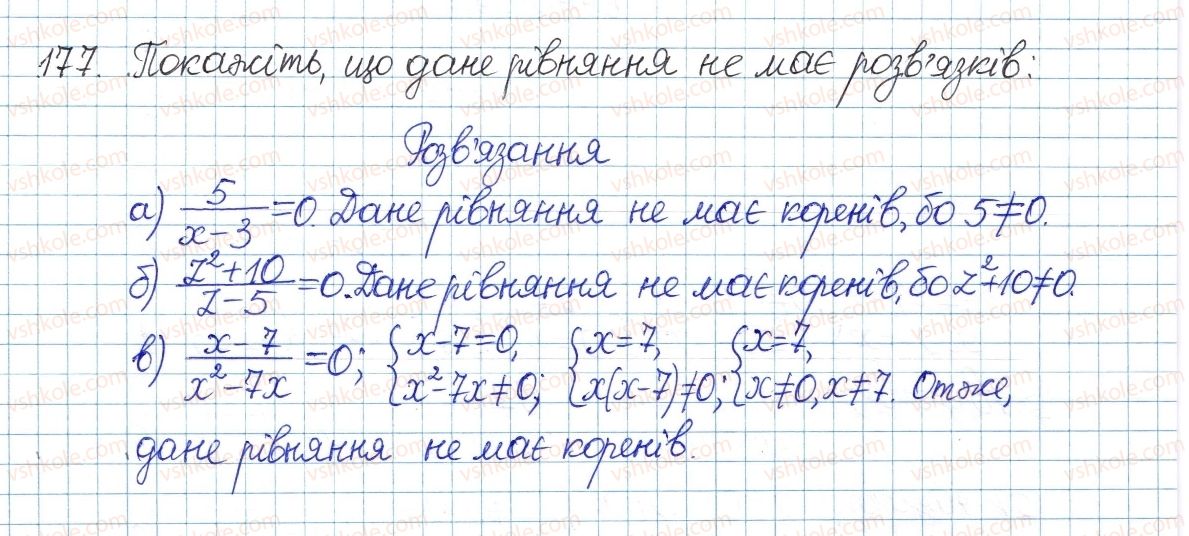 177. Покажіть, що дане рівняння не має розв'язків:
Розв'язання
а) 5/(x-3) = 0. Дане рівняння не має коренів, бо 5≠0.
б) (z²+10)/(z-5) = 0. Дане рівняння не має коренів, бо z²+10≠0.
в) (x-7)/(x²-7x) = 0; { x-7=0, x²-7x≠0; { x=7, x(x-7)≠0; { x=7, x≠0, x≠7. Отже,
дане рівняння не має коренів.